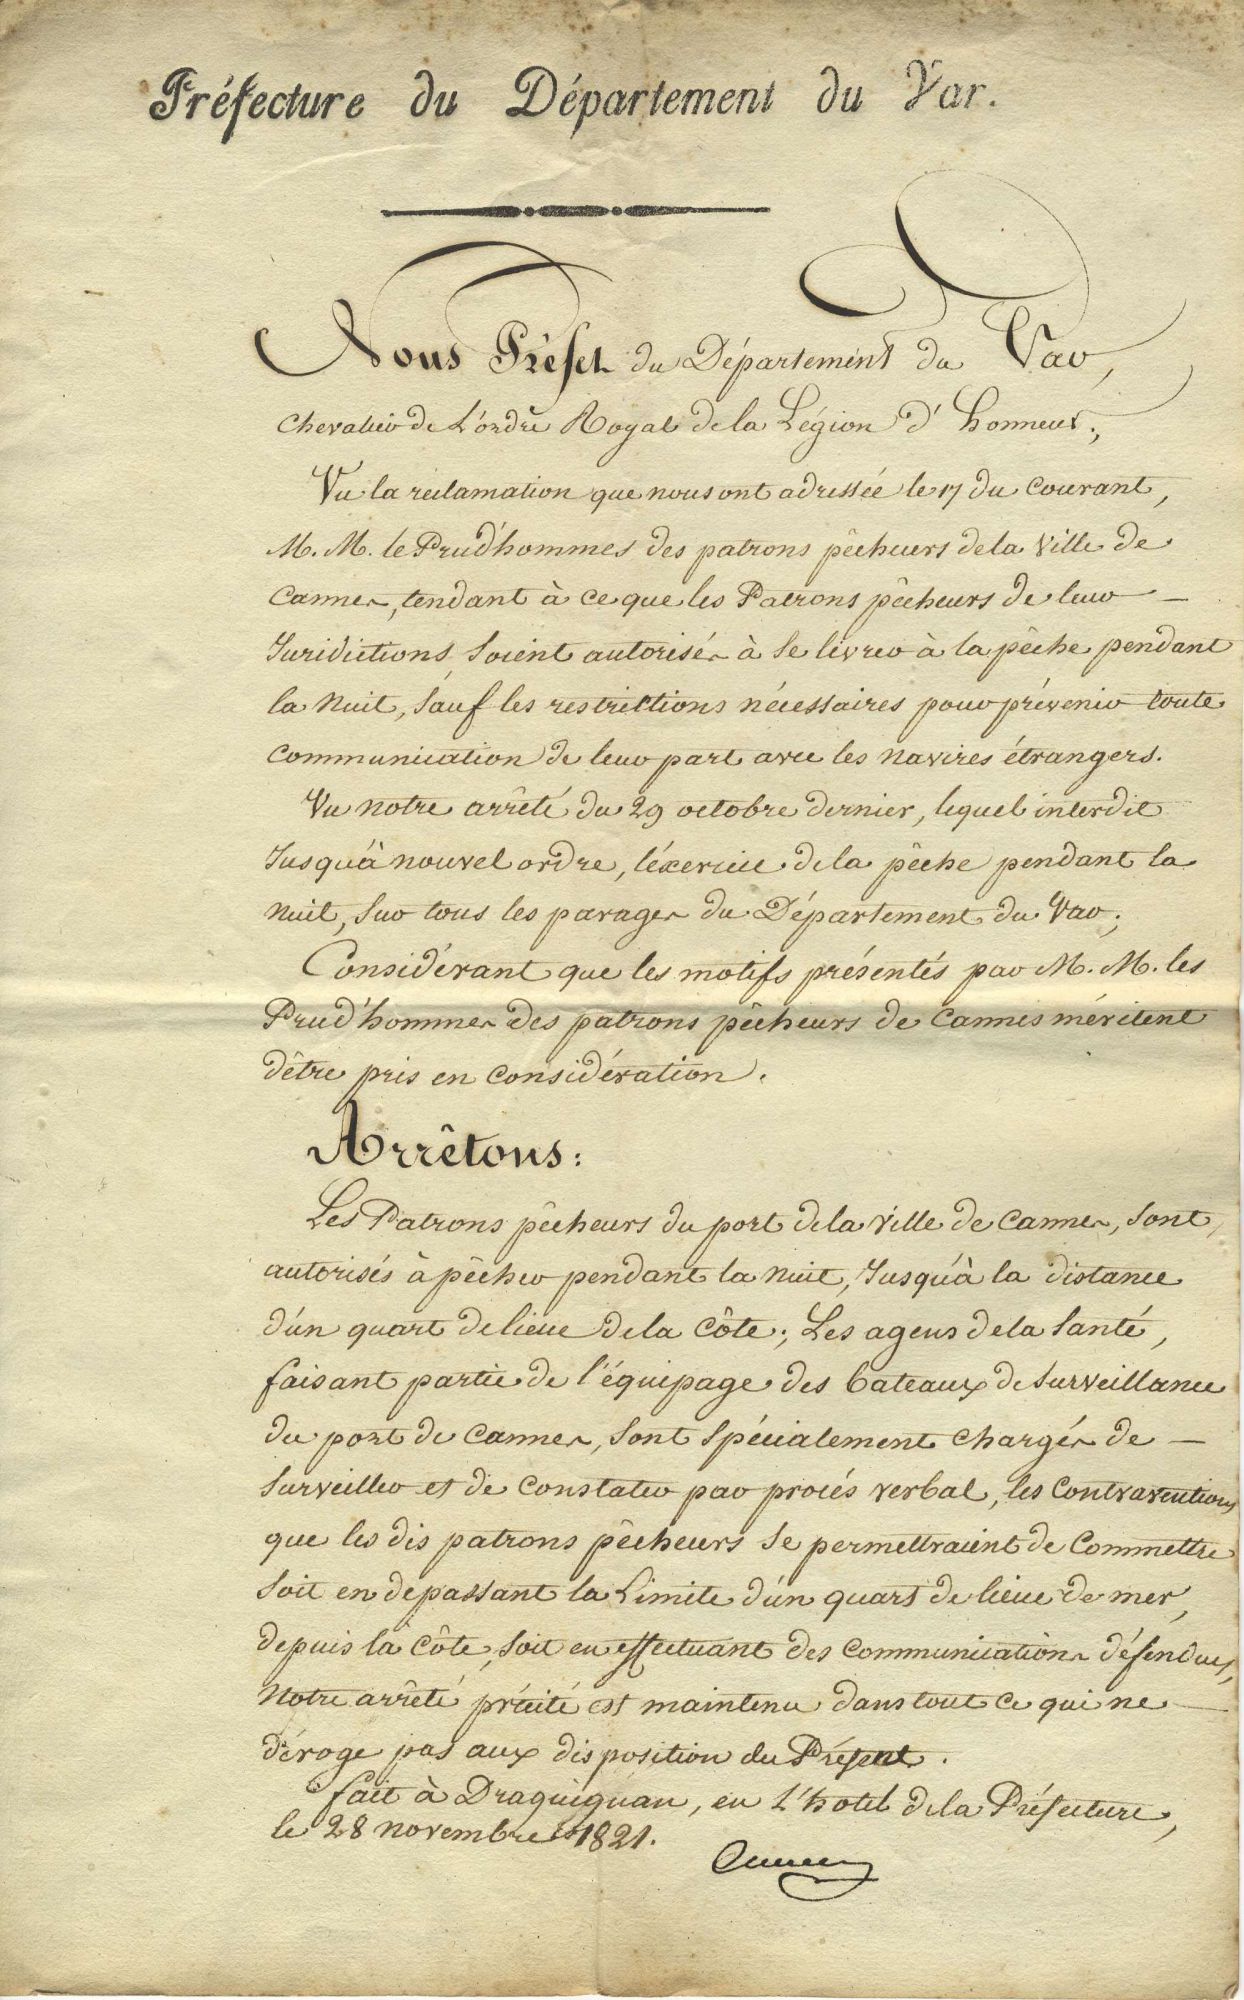 Préfecture du Département du Var.
Nous Préfet du Département du Var,
Chevalier de L'ordre Royal de la Légion d'honneur;
Vu la réclamation que nous ont adressée le 17 du Courant,
M. M. le Prud'hommes des patrons pêcheurs de la Ville de
Cannes, tendant à ce que les Patrons pêcheurs de leur
Juridictions soient autorisés à se livrer à la pêche pendant
la nuit, sauf les restricttions nécessaires pour prévenir toute
communication de leur part avec les navires étrangers.
Vu notre arrêté du 29 octobre dernier, lequel interdit
Jusqu'à nouvel ordre, l'éxercice de la pêche pendant la
nuit, sur tous les parages du Département du Var;
Considérant que les motifs présentés par M. M. les
Prud'hommes des patrons pêcheurs de Cannes méritent
d'être pris en considération.
Arrêtons:
Les Patrons pêcheurs du port de la Ville de Cannes, sont
autorisés à pêcher pendant la nuit, Jusqu'à la distance
d'un quart de lieue de la Côte; Les agens de la Santé,
faisant partie de l'équipage des bateaux de Surveillance
du port de Cannes, sont spécialement chargés de
surveiller et de constater par procés verbal, les Contraventions
que les dis patrons pêcheurs se permettraient de Commettre
soit en depassant la Limite d'un quart de lieue de mer,
depuis la Côte, soit en effectuant des communications défendues,
Notre arrêté précité est maintenu dans tout ce qui ne
déroge pas aux disposition du Présent.
fait à Draguignan, en L'hotel de la Préfecture,
le 28 novembre 1821.